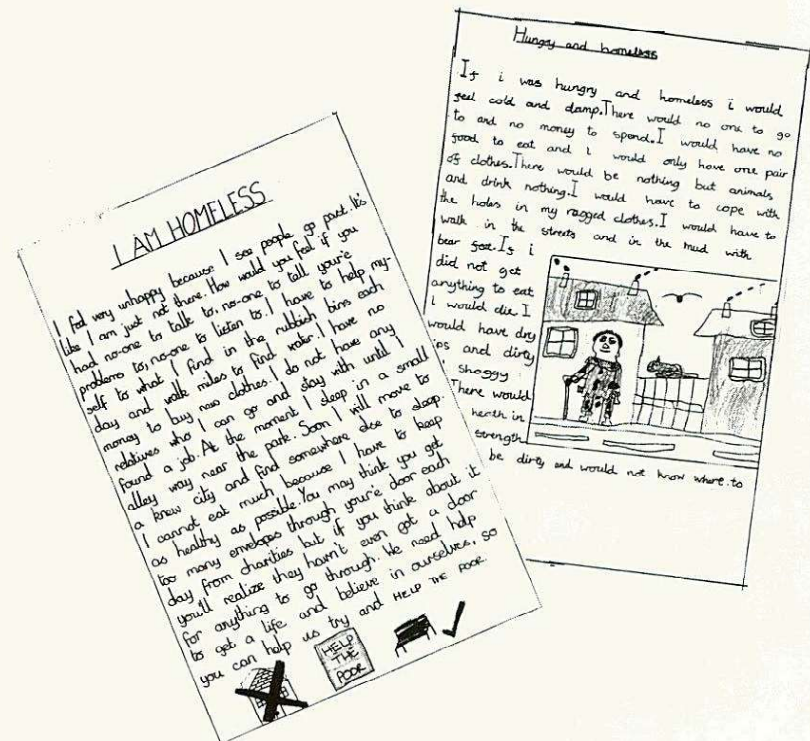 I AM HOMELESS
I feel very unhappy because I see people go past. It's
like I am just not there. How would you feel if you
had no-one to talk to, no-one to tall your'e
problems to, no-one to listen to. I have to help my-
self to what I find in the rubbish bins each
day and walk miles to find water. I have no
money to buy new clothes. I do not have any
relatives who I can go and stay with until I
found a job. At the moment I sleep in a small
alley way near the park. Soon I will move to
a knew city and find somewhere else to sleep.
I cannot eat much because I have to keep
as healthy as possible. You may think you get
too many envelopes through your'e door each
day from charities but if you think about it
you'll realize they havn't even got a door
for anything to go through. We need help
to get a life and believe in ourselves, so
you can help us try and HELP THE POOR.
HELP
THE
POOR
Hungry and homeless
If i was hungry and homeless i would
feel cold and damp. There would no one to go
to and no money to spend. I would have no
food to eat and i would only have one pair
of clothes. There would be nothing but animals
and drink nothing. I would have to cope with
the holes in my ragged clothes. I would have to
walk in the streets and in the mud with
bear feet. If i
did not get
anything to eat
i would die. I
would have dry
ips and dirty
shaggy
There would
heath in
strength
be dirty and would not know where to